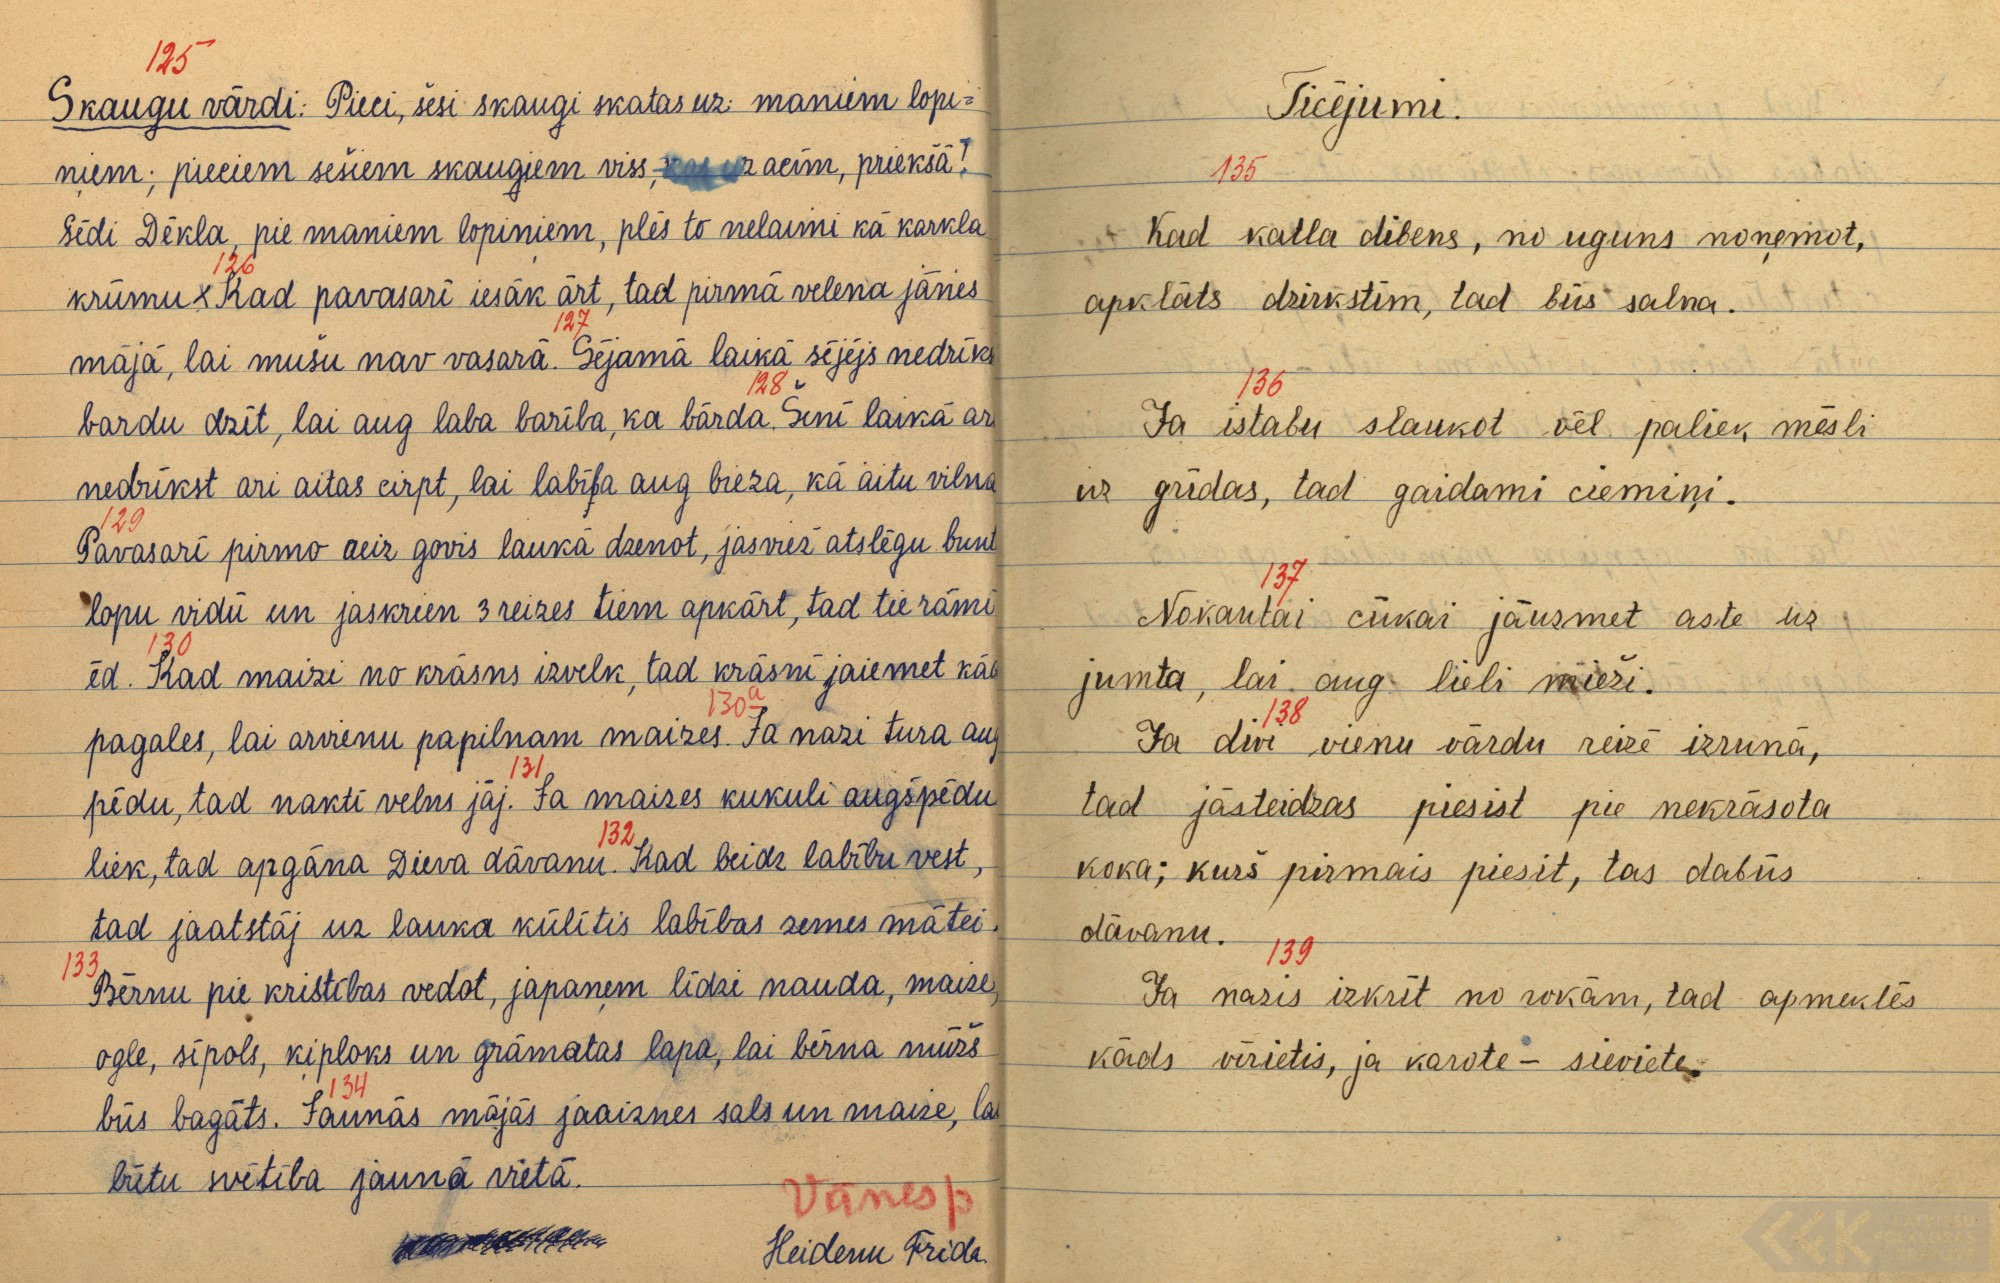 125
Skaugu vārdi: Pieci, šesi skaugi skatas uz maniem lopi=
ņiem; pieciem sešiem skaugiem viss, kas uz acīm, priekšā!
Sēdi Dēkla, pie maniem lopiņiem, plēs to nelaimi kā karkla
126
krūmu x Kad pavasarī iesāk ārt, tad pirmā velena jānes
127
mājā, lai mušu nav vasarā. Sējamā laikā sējējs nedrīks
128
bardu dzīt, lai aug laba barība, ka bārda. Šinī laikā ar
nedrīkst ari aitas cirpt, lai labība aug bieza, kā aitu vilna
129
Pavasarī pirmo reiz govis laukā dzenot, jasviež atslēgu bunt
lopu vidū un jaskrien 3 reizes tiem apkārt, tad tie rāmi
130
ēd. Kad maizi no krāsns izvelk, tad krāsnī jaiemet kād
130a
pagales, lai arvienu papilnam maizes. Ja nazi tura aug
131
pēdu, tad naktī velns jāj. Ja maizes kukuli augšpēdu
132
liek, tad apgāna Dieva dāvanu. Kad beidz labību vest,
tad jaatstāj uz lauka kūlītis labības zemes mātei.
133
Bērnu pie kristības vedot, japaņem līdzi nauda, maize,
ogle, sīpols, ķiploks un grāmatas lapa, lai bērna mūžs
134
būs bagāts. Jaunās mājās jaaiznes sals un maize, lai
būtu svētība jaunā vietā.
Vānesp
Heidenu Frida.
Ticējumi.
135
Kad katla dibens, no uguns noņemot,
apklāts dzirkstīm, tad būs salna.
136
Ja istabu slaukot vēl paliek mēsli
uz grīdas, tad gaidami ciemiņi.
137
Nokautai cūkai jāuzmet aste uz
jumta, lai aug lieli mieži.
138
Ja divi vienu vārdu reizē izrunā,
tad jāsteidzas piesist pie nekrāsota
koka; kurš pirmais piesit, tas dabūs
dāvanu.
139
Ja nazis izkrīt no rokām, tad apmeklēs
kāds vīrietis, ja karote – sieviete.